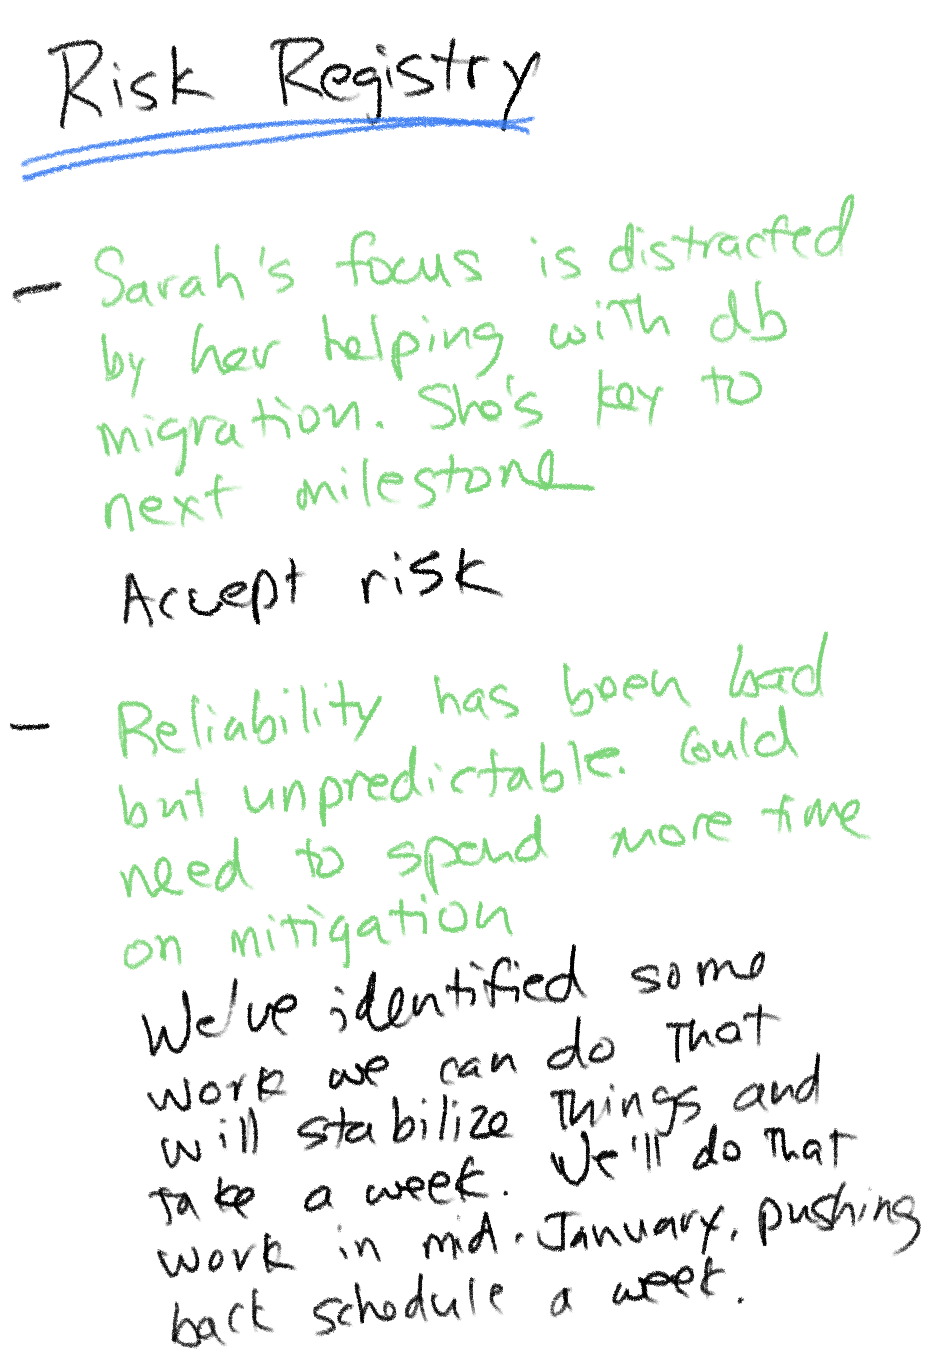 Risk Registry
- Sarah's focus is distracted
by her helping with db
migration. She's key to
next milestone
Accept risk
- Reliability has been bad
but unpredictable. Could
need to spend more time
on mitigation
We've identified some
work we can do that
will stabilize things and
take a week. We'll do that
work in mid-January, pushing
back schedule a week.